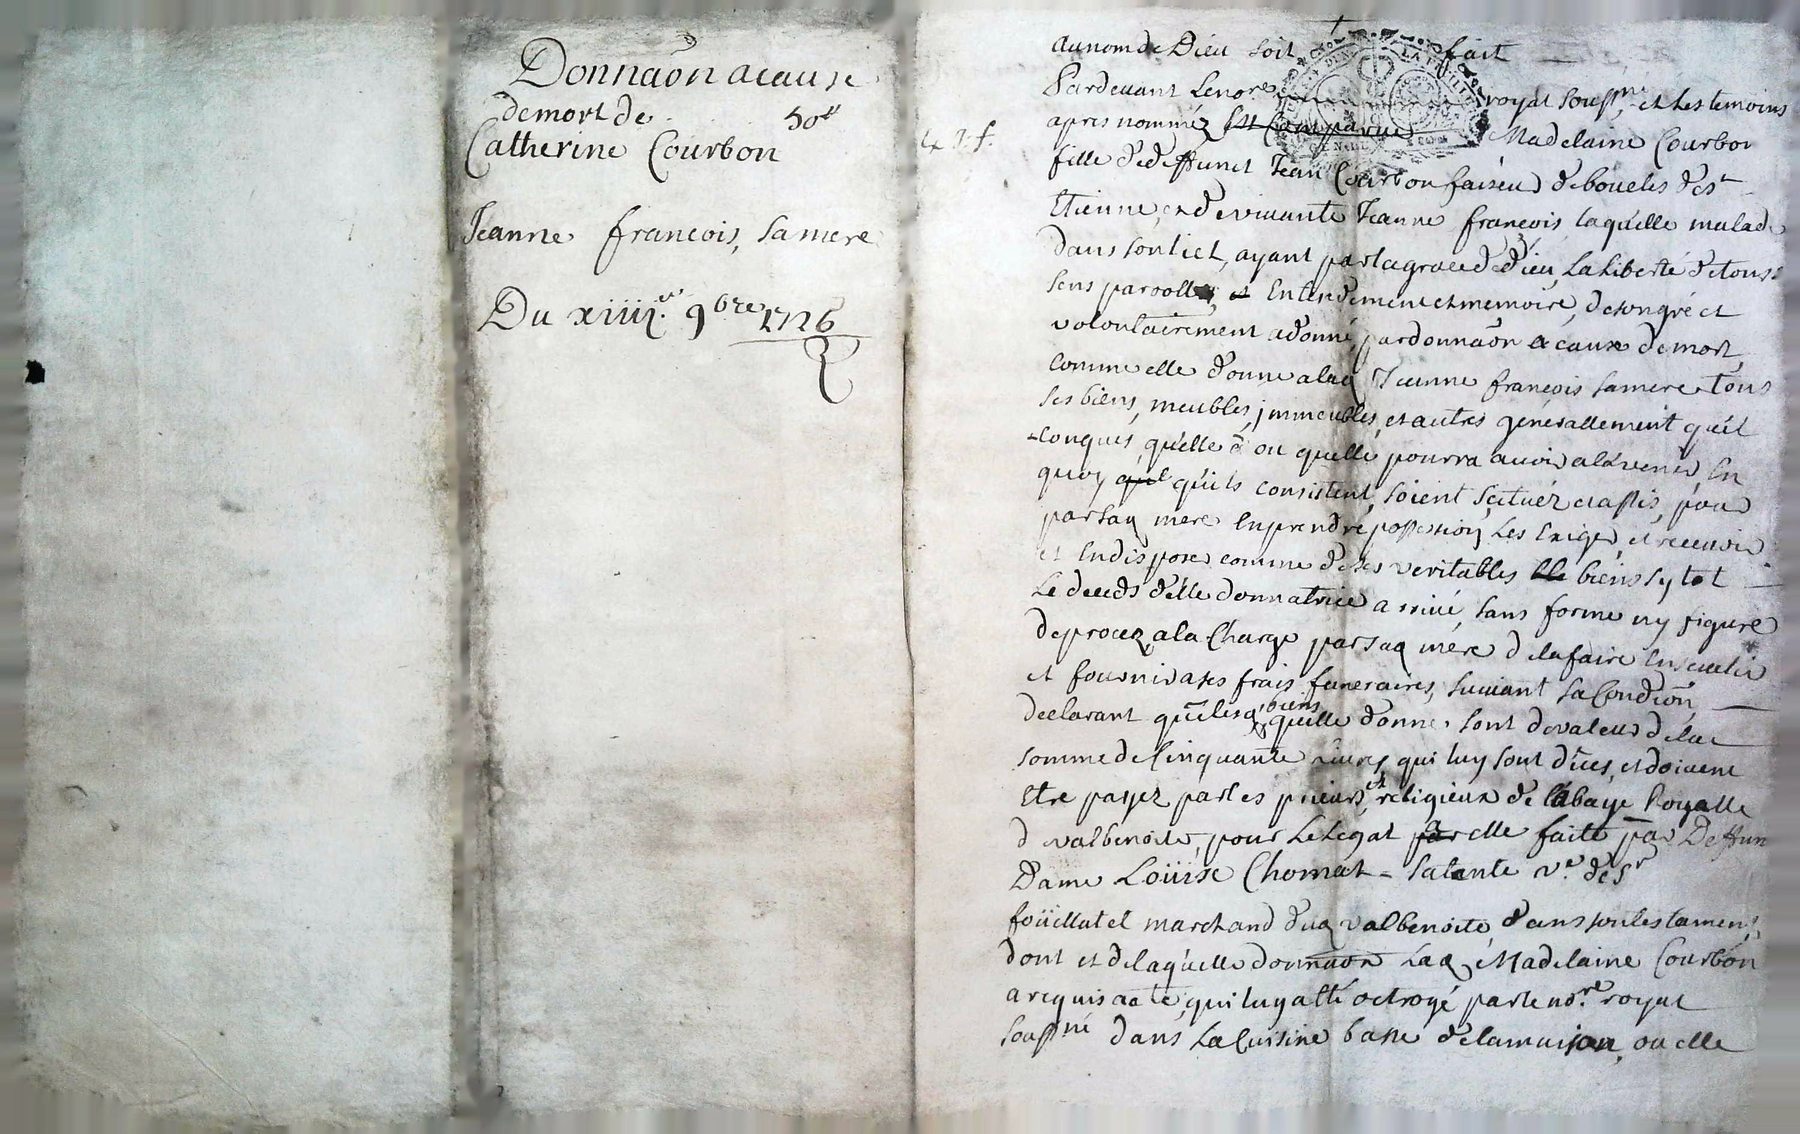 Donnaōn a cause
de mort de 50#
Catherine Courbon
Jeanne francois, sa mere
Du xiiii.e 9bre 1726
au nom de Dieu soit fait
Pardevant Le nore royal soussné et Les temoins
apres nomméz Madelaine Courbon
fille de deffunct Jean Courbon faiseur de boucles de st
Etienne, et de vivante Jeanne francois, laquelle malade
dans son lict, ayant par la grace de dieu, La Liberté de tous
sens parolle, Entendement et memoire, de son gré et
volontairement a donné, par donnaōn a cause de mort,
comme elle donne a laq Jeanne francois sa mere tous
ses biens, meubles, immeubles, et autres generallement quel
-conques, quelle a ou quelle pourra avoir a lavenir, En
quoy quils consistent, soient, scituéz et assis, pour
par saq mere En prendre possession, Les Exiger, et recevoir
et En disposer comme de ses veritables biens sy tot
Le deceds delle donnatrice arrivé, sans forme ny figure
de procez, a la Charge par saq mere de la faire Ensevelir
et fournir a ses frais funeraires, suivant sa Condōn,
declarant que lesq biens quelle donne, sont de valeur de la
somme de Cinquante Livres, qui luy sont dues, et doivent
Etre payez par les prieurs et religieux de Labaye Royalle
de valbenoite, pour Le Legat a elle faite par Deffun
Dame Loüise Chomat - sa tante ve. de Sr
foüillatet marchand duq valbenoite, dans son testament,
dont et de laquelle donnaōn Laq Madelaine Courbon
a requis acte, qui luy a été octroyé par le nore. royal
soussné dans La Cuisine basse de la maison, ou elle